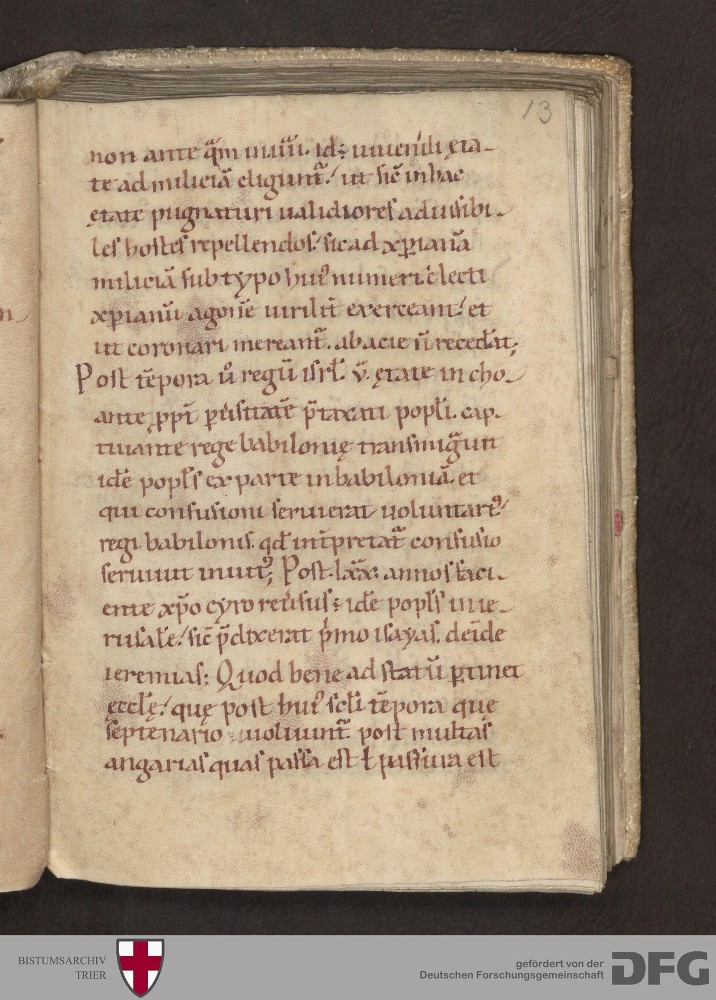 13
non ante q̃m uiuĩu. id÷ iuuenili ęta-
te ad miliciã eligunt᷑! ut sic̃ in hac
ętate pugnaturi ualidiores ad uisibi-
les hostes repellendos! sic ad xp̃ianã
miliciã sub typo hui᷒ numeri electi
xp̃ianũ agonẽ uirilit̃ exerceant! et
ut coronari mereant᷑. ab acie ñ recedãt;
Post tẽpora ů regũ isrl̃. v̊. ętate incho-
ante ꝓpt̃ ꝑuersitatẽ p̃taxati popl̃i. cap-
tiuante rege babilonię transmig̃uit
idẽ popl̃s ex parte in babiloniã. et
qui confusioni seruierat uoluntari᷒!
regi babilonis. qd̃ int̃pretat᷑ confusio
seruiuit inuit᷒; Post .lxx. annos faci-
ente xp̃o cyro reũsus÷ idẽ popl̃s in ie-
rusalẽ! sic̃ p̃dixerat p̃mo isayas. deĩde
ieremias: Quod bene ad statũ ꝑtinet
ęccl̃ę! quę post hui᷒ scl̃i tẽpora quę
septenario uoluunt᷑ post multas
angarias quas passa est ł passura est
BISTUMSARCHIV
TRIER
gefördert von der
Deutschen Forschungsgemeinschaft
DFG